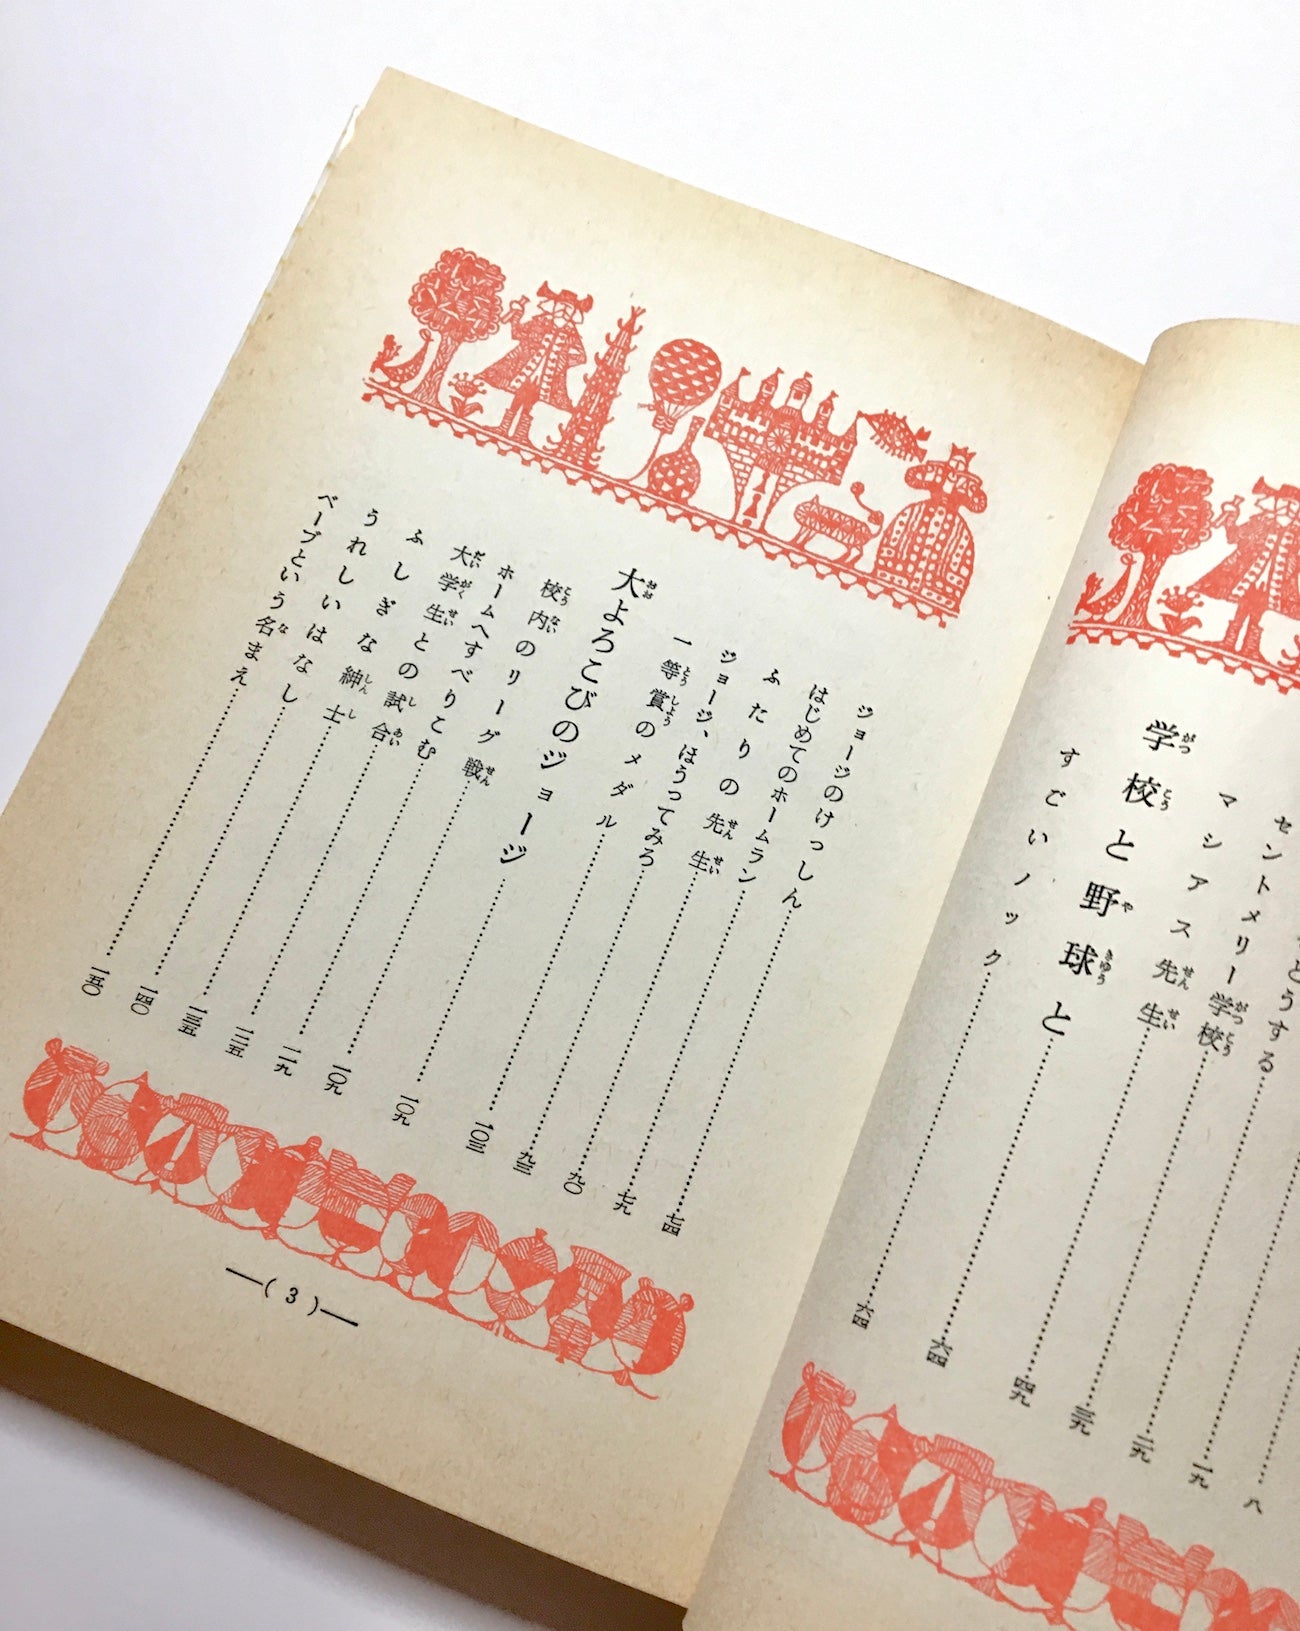 八
一九
どうする……二九
セントメリー学校……三九
マシアス先生……四九
学校と野球と……六四
すごいノック……六四
ジョージのけっしん……七四
はじめてのホームラン……七九
ふたりの先生……九〇
ジョージ、ほうってみろ……九三
一等賞のメダル……一〇三
大よろこびのジョージ……一〇九
校内のリーグ戦……一〇九
ホームへすべりこむ……一一九
大学生との試合……一二五
ふしぎな紳士……一三五
うれしいはなし……一四〇
ベーブという名まえ……一五〇
―( 3 )―